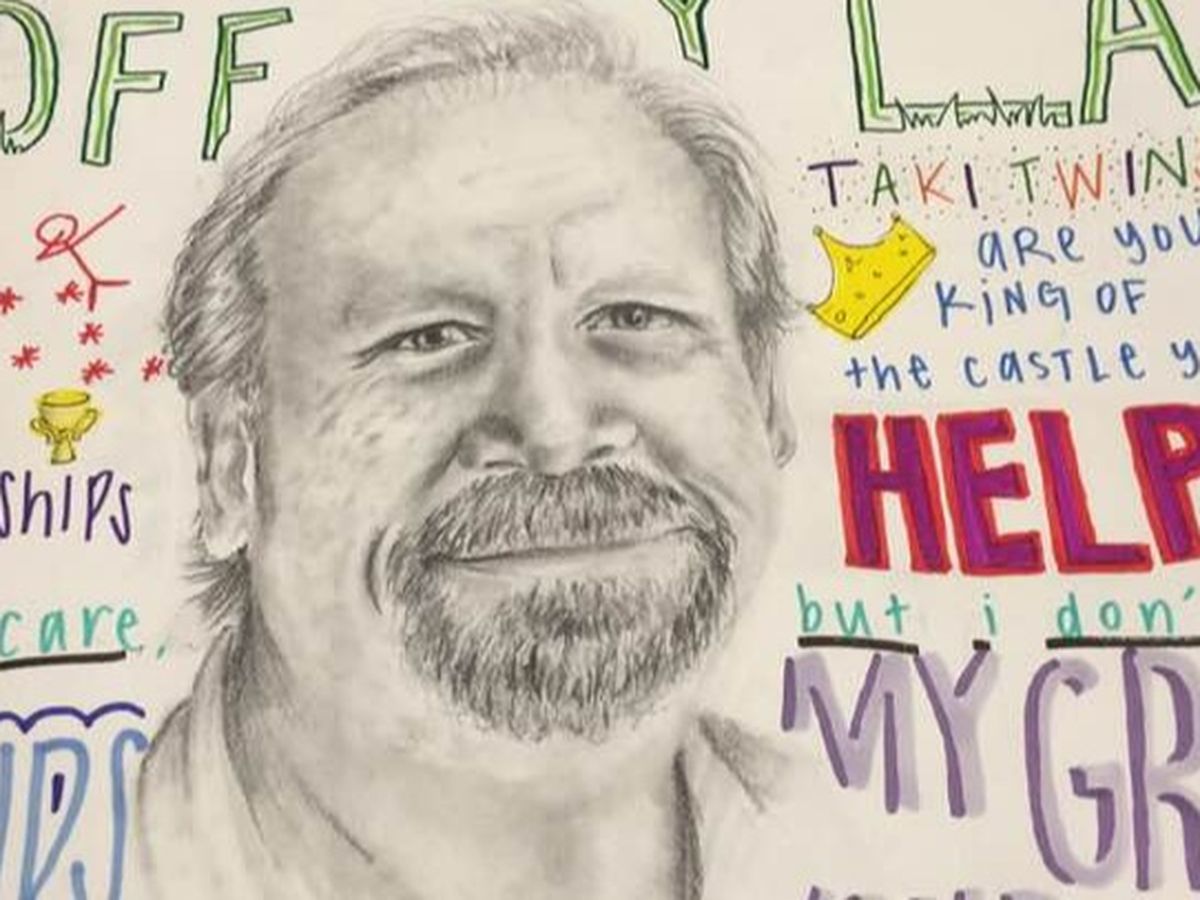 OFF Y LA
TAKI TWINS
ARE YOU
KiNG OF
the CASTLE y
ShIPS
HELP
care.
but i don'
MY GR
UPS